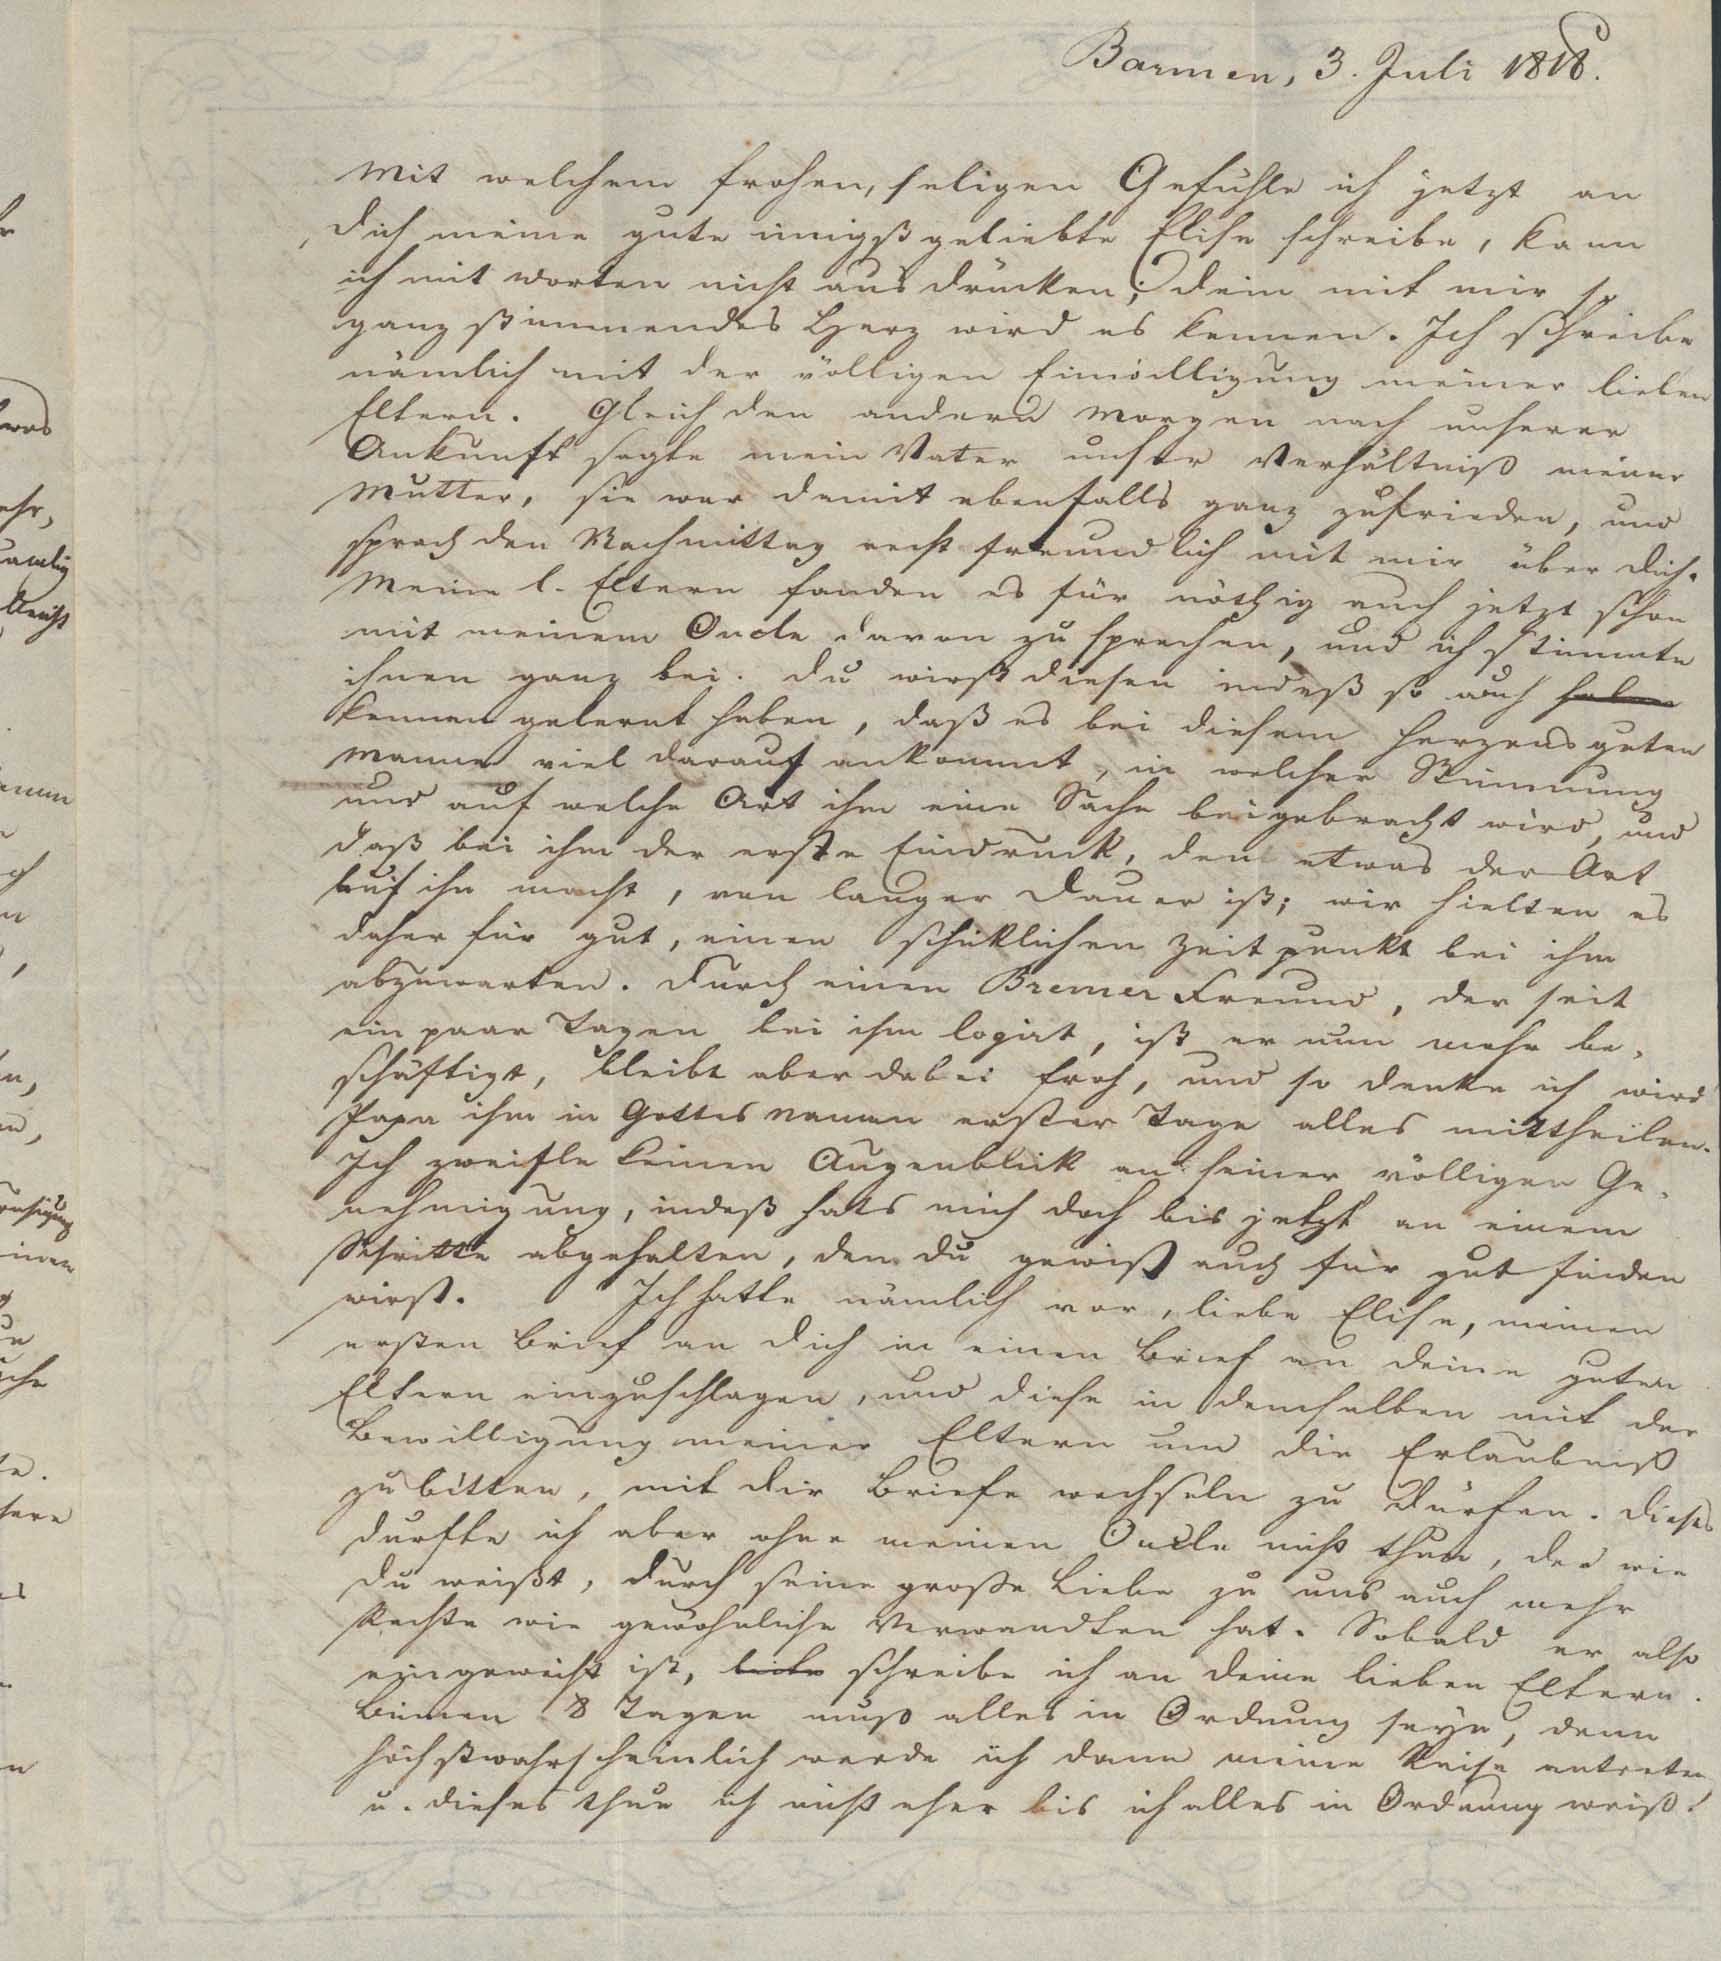 Barmen, 3. Juli 1818.
Mit welchem frohen, seligen Gefühle ich jetzt an
Dich meine gute innigst geliebte Elise schreibe, kann
ich mit Worten nicht ausdrücken; Dein mit mir so
ganz stimmendes Herz wird es kennen. Ich schreibe
nämlich mit der völligen Einwilligung meiner lieben
Eltern. Gleich den andern Morgen nach unserer
Ankunft sagte mein Vater unser Verhältniß meiner
Mutter, sie war damit ebenfalls ganz zufrieden, und
sprach den Nachmittag recht freundlich mit mir über Dich.
Meine l. Eltern fanden es für nöthig auch jetzt schon
mit meinem Oncle davon zu sprechen, und ich stimmte
ihnen ganz bei. Du wirst diesen indeß so auch haben
kennen gelernt haben, daß es bei diesem herzensguten
Manne viel darauf ankommt, in welcher Stimmung
und auf welche Art ihm eine Sache beigebracht wird, und
daß bei ihm der erste Eindruck, den etwas der Art
auf ihn macht, von langer Dauer ist; wir hielten es
daher für gut, einen schicklichen Zeitpunkt bei ihm
abzuwarten. Durch einen Bremer Freund, der seit
ein paar Tagen bei ihm logirt, ist er nun mehr be-
schäftigt, bleibt aber dabei froh, und so denke ich wird
Papa ihm in Gottes Namen erster Tage alles mittheilen.
Ich zweifle keinen Augenblick an seiner völligen Ge-
nehmigung, indeß hats mich doch bis jetzt an einem
Schritte abgehalten, den Du gewiß auch für gut finden
wirst. Ich hatte nämlich vor, liebe Elise, meinen
ersten Brief an Dich in einen Brief an Deine guten
Eltern einzuschlagen, und diese in demselben mit der
Bewilligung meiner Eltern um die Erlaubniß
zu bitten, mit Dir Briefe wechseln zu dürfen. Dieses
durfte ich aber ohne meinen Oncle nicht thun, der wie
Du weißt, durch seine große Liebe zu uns auch mehr
Rechte wie gewöhnliche Verwandten hat. Sobald er also
eingeweiht ist, schreibe ich an Deine lieben Eltern.
Binnen 8 Tagen muß alles in Ordnung seyn, denn
höchstwahrscheinlich werde ich dann meine Reise antreten
u. dieses thue ich nicht eher bis ich alles in Ordnung weiß!